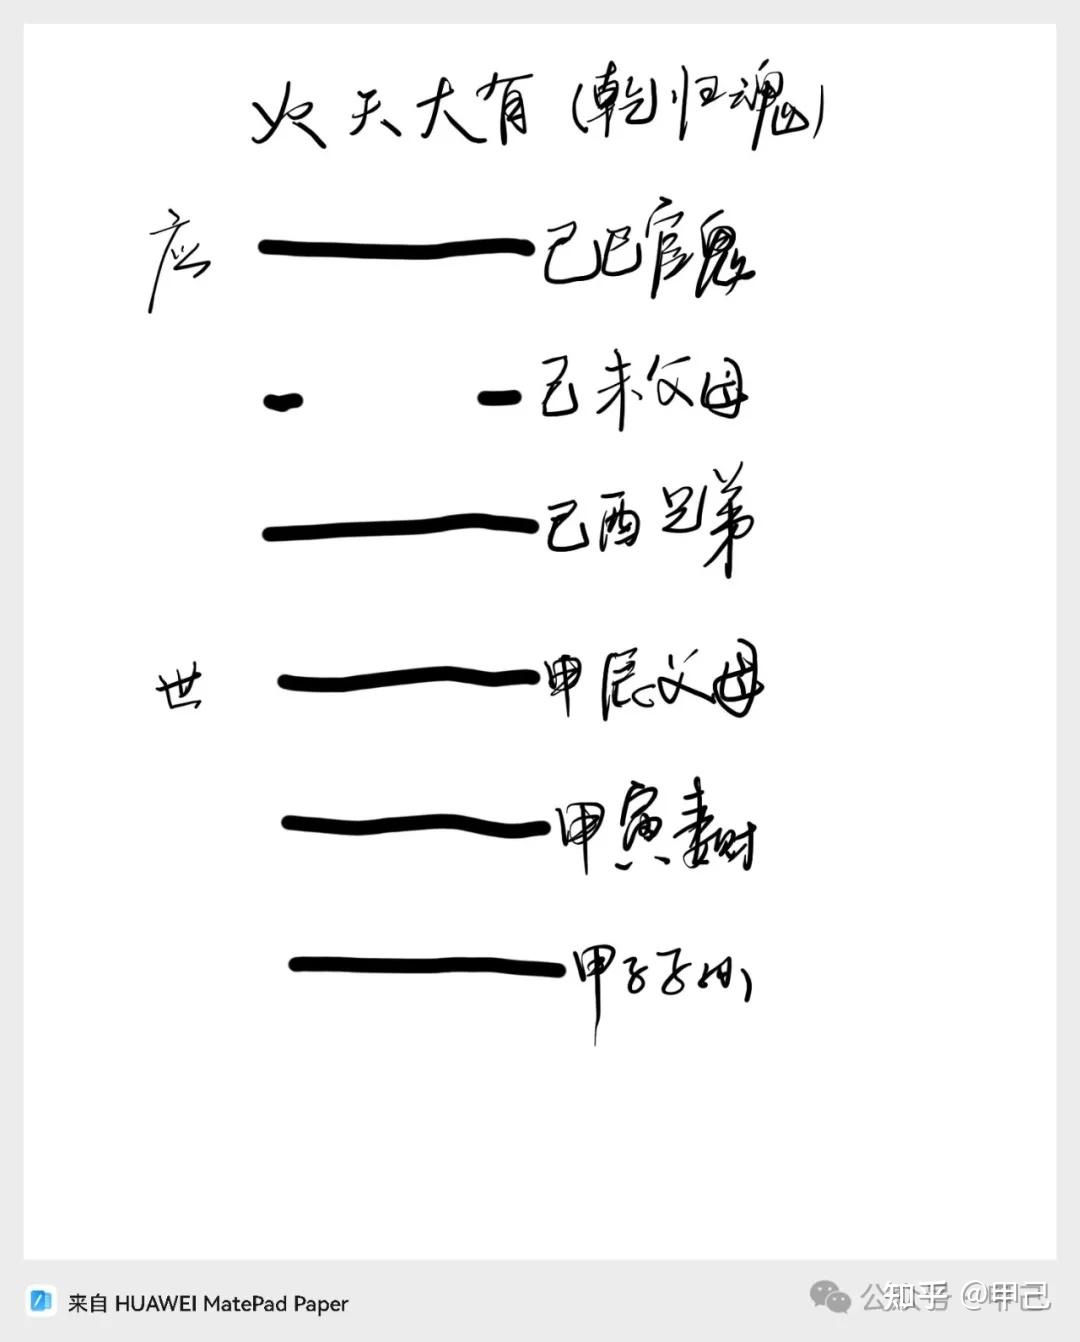 火天大有(乾归魂)
应 己巳官鬼
己未父母
己酉兄弟
世 甲辰父母
甲寅妻财
甲子子孙
来自 HUAWEI MatePad Paper
知乎 @甲己